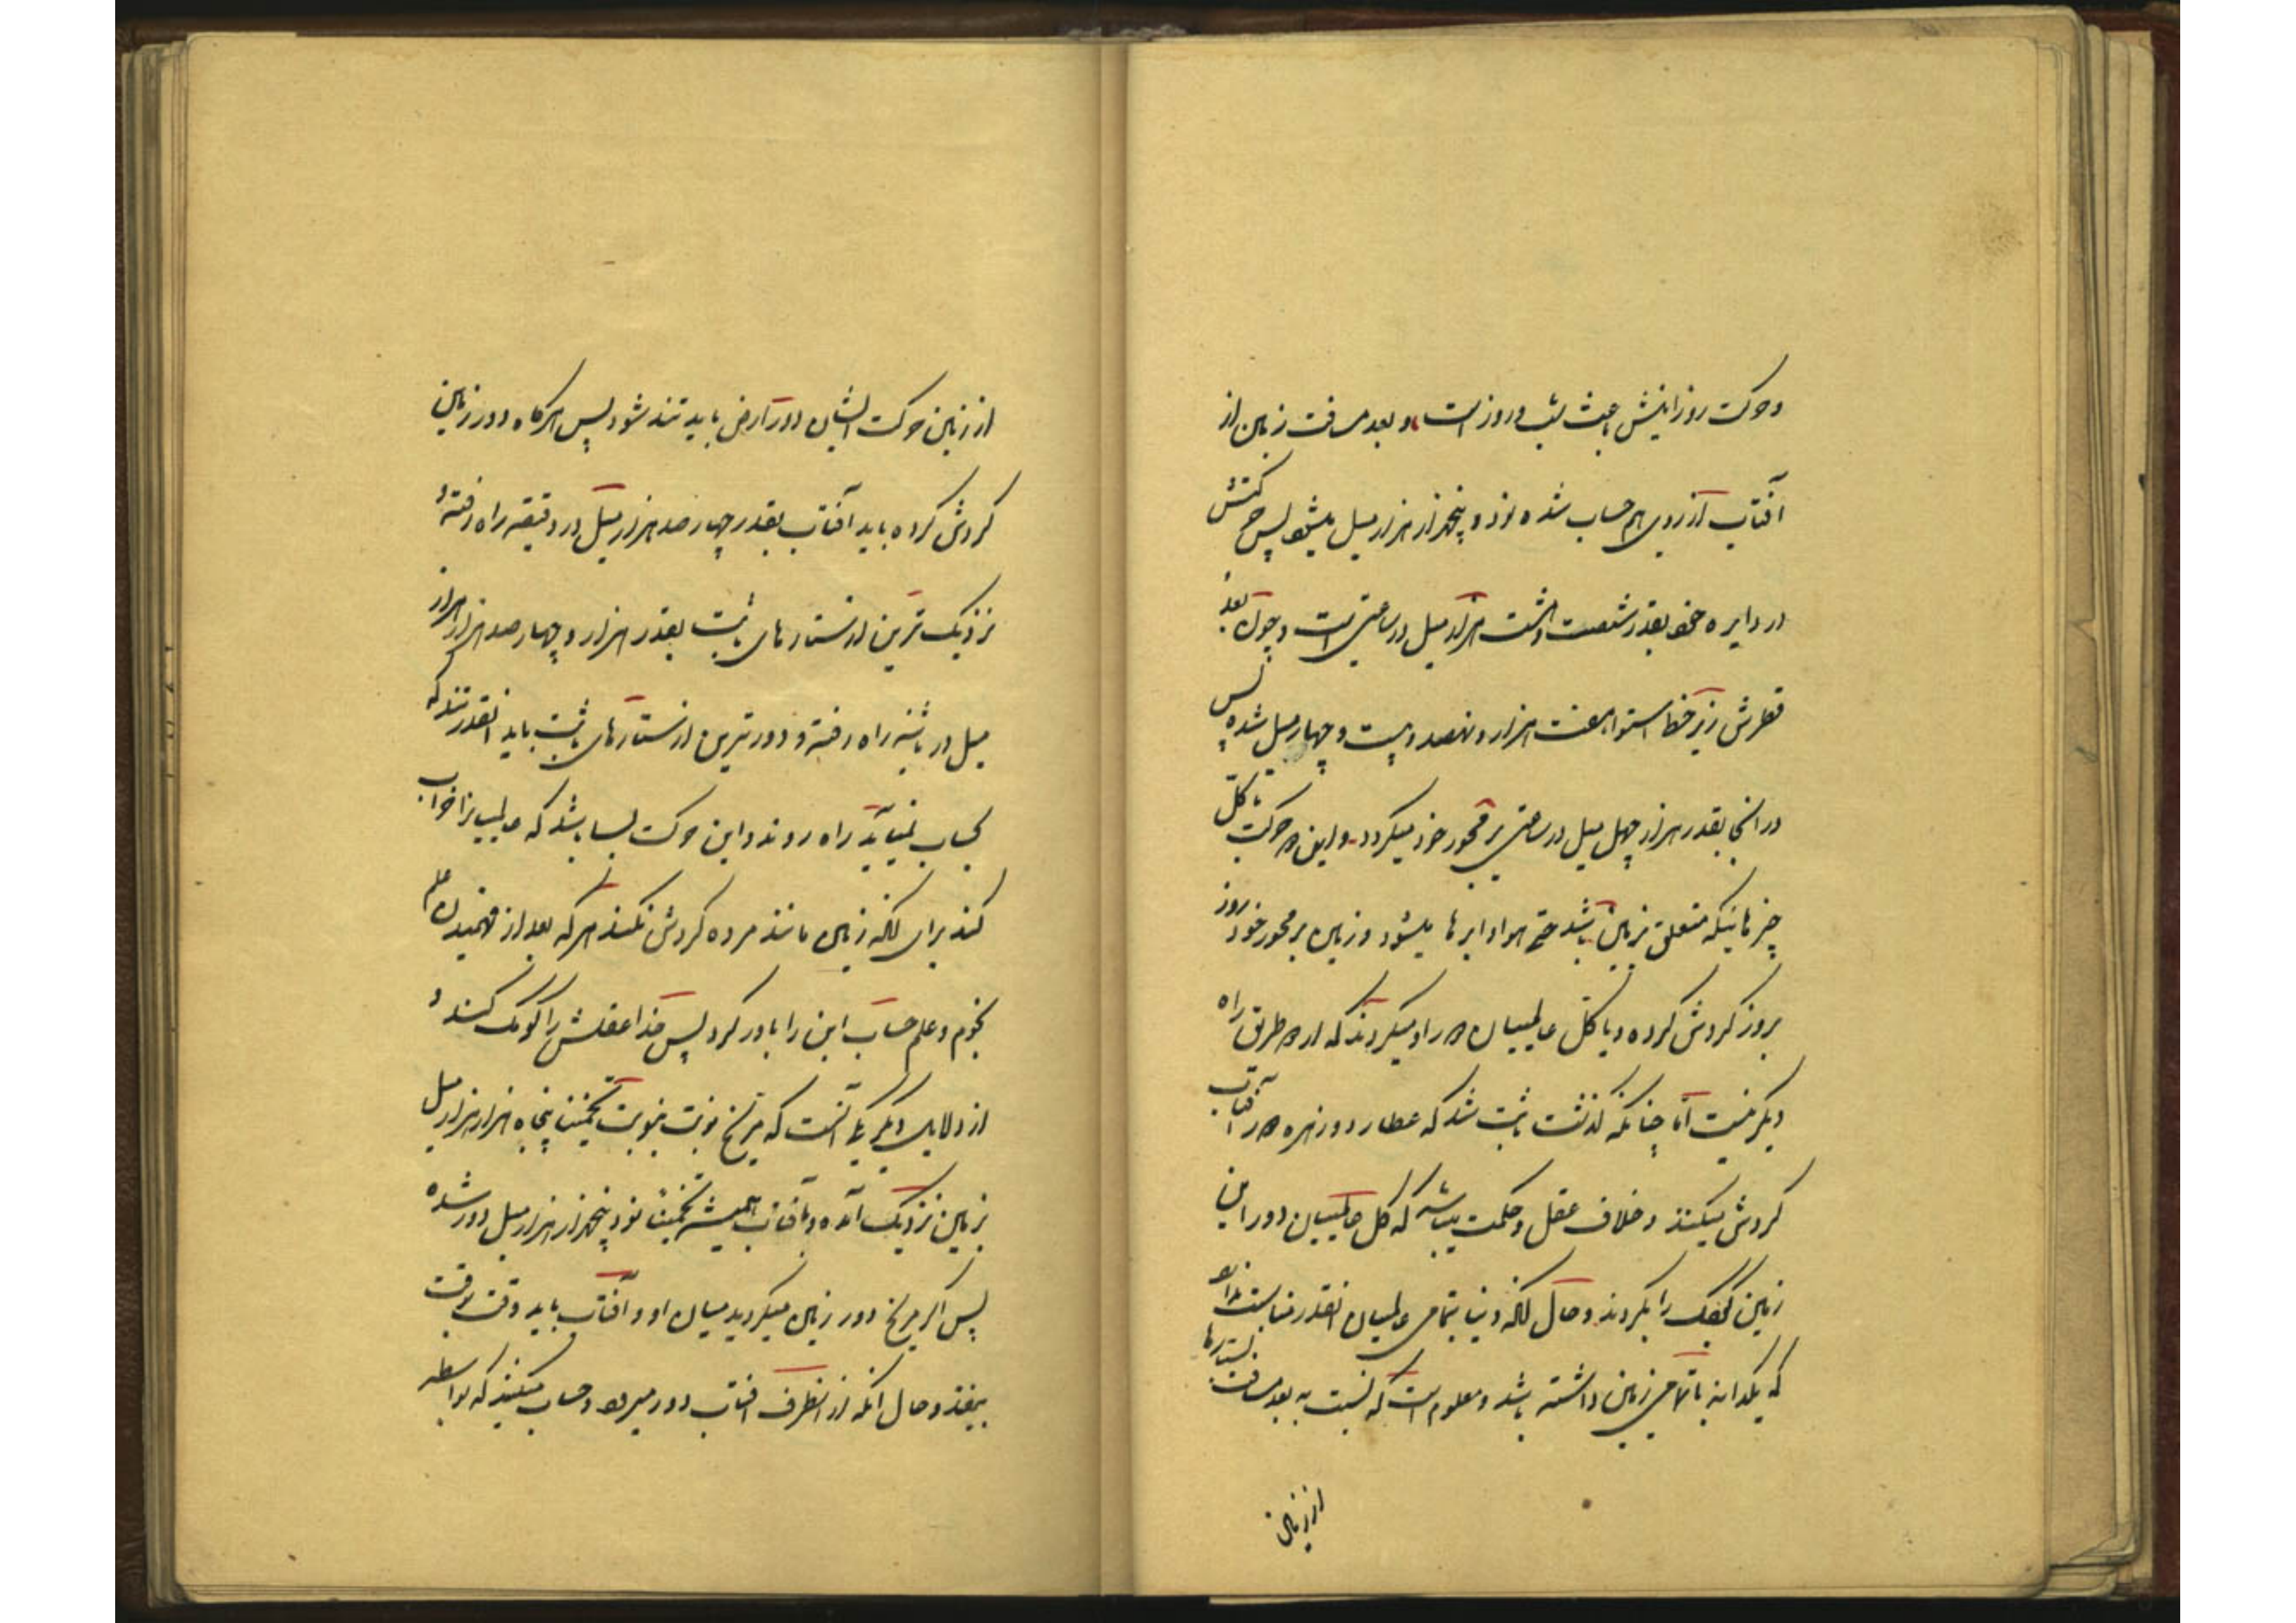 و حرکت روزانیش باعث شب و روز است و بعد مسافت زمین از
آفتاب از روی هم حساب شده نود و پنجهزار هزار میل میشود پس حرکتش
در دایره خود بقدر شصت و هشت هزار میل در ساعتی است و چون بعد
قطرش زیر خط استوا هفت هزار و نهصد و بیست و چهار میل شده پس
در آنجا بقدر هزار چهل میل در ساعتی بر محور خود میگردد و این حرکت با کل
چیزهائیکه متعلق بزمین باشد حتی هوا و ابرها میشود و زمین بر محور خود روز
بروز گردش کرده و یا کل عالمیان دور او میگردند که از طریق راه
دیگر نیست اما چنانکه گذشت ثابت شد که عطارد و زهره دور آفتاب
گردش میکنند و خلاف عقل و حکمت میباشد که کل عالمیان دور این
زمین کوچک را بگردند و حال آنکه دنیا بتمامی عالمیان آنقدر مناسبت ندارد
که یکدانه با تمامی زمین داشته باشد و معلوم است که نسبت به بعد مسافت ستارها
از زمین
از زمین حرکت ایشان دور ارض باید تند شود پس هرگاه دور زمین
گردش کرده باید آفتاب بقدر چهار صد هزار میل در دقیقه راه رفته و
نزدیک ترین از ستارهای ثابت بقدر هزار و چهار صد هزار هزار
میل در ثانیه راه رفته و دور ترین از ستارهای ثابت باید آنقدر تند که
بحساب نمیآید راه روند و این حرکت بسا باشد که عالمیانرا خراب
کند برای آنکه زمین مانند مرده گردش نکند هر که بعد از فهمیدن علم
نجوم و علم حساب این را باور کرد پس خدا عقلش را کومک کند و
از دلایل دیگر یکی آنست که مریخ نوبت بنوبت تخمینا پنجاه هزار هزار میل
بزمین نزدیک آمده و بآفتاب همیشه تخمینا نود و پنجهزار هزار میل دور شده
پس اگر مریخ دور زمین میگردید میان او و آفتاب باید وقت بوقت
بیفتد و حال آنکه از آنطرف آفتاب دور میرود و حساب میکنند که بواسطه